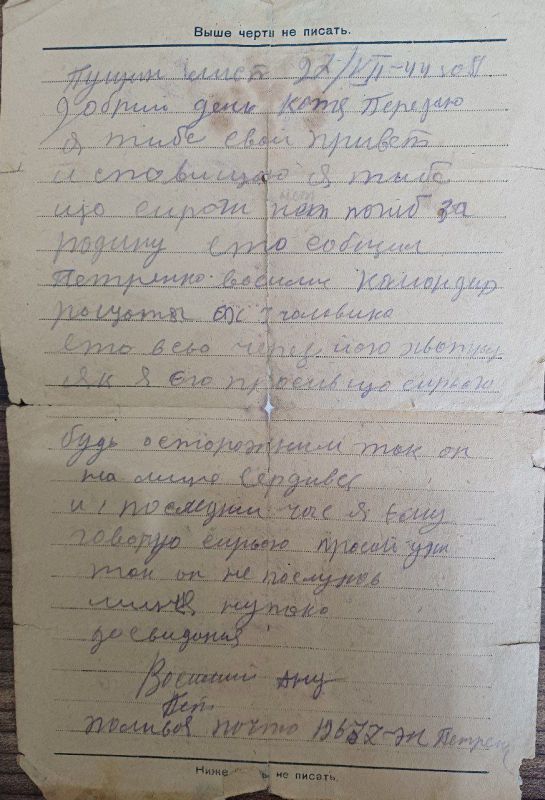 Выше черты не писать.
Пущин лист 22/XII-44 года
Добрий день Катя Передаю
я тибе свой привет
и спавищаю я тыбе
що сирожи нет погиб за
родину ето собщил
Петренко васили Камондир
роцоты чоловика
ето всьо через його
як я его просив що сирьожо
будь осторожним так он
на мине Сердивсь
и последний час я ему
говорю сирьожо просай уже
так он не послухав
мине ну пока
досвидания
Василий
Пет
поливая почто Петренко
Ниже не писать.